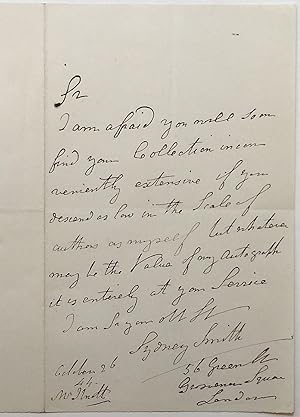 Sr
I am afraid you will soon
find your Collection incon
veniently extensive if you
descend as low in the Scale of
authors as myself but whatever
may be the Value of my Autograph
it is entirely at your Service
I am Sr your obt St
Sydney Smith
56 Green St
Grosvenor Square
London
October 26
44